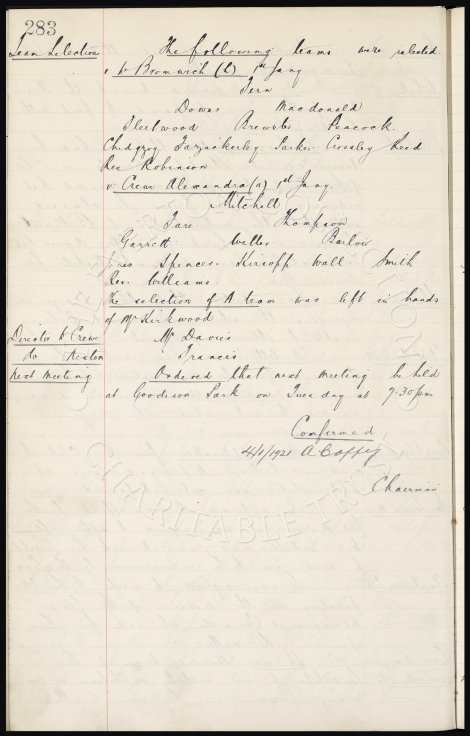 283
Team Selection The following teams were selected
v W Bromwich (h) 1st Jany
Fern
Downs Macdonald
Fleetwood Brewster Peacock
Chedgzoy Jazzackerley Parker Crossley Reed
Res Robinson
v Crewe Alexandra (a) 1st Jany
Mitchell
Fare Thompson
Garrett Weller Barlow
Jones Spencer Kirsopp Wall Smith
Res. Williams.
The selection of A team was left in hands
of Mr Kirkwood
Director to Crewe Mr Davies
do Neston Francis
Next Meeting Ordered that next meeting be held
at Goodison Park on Tuesday at 7.30 pm
Confirmed
4/1/1921 A Coffey
Chairman
CHARITABLE TRUST